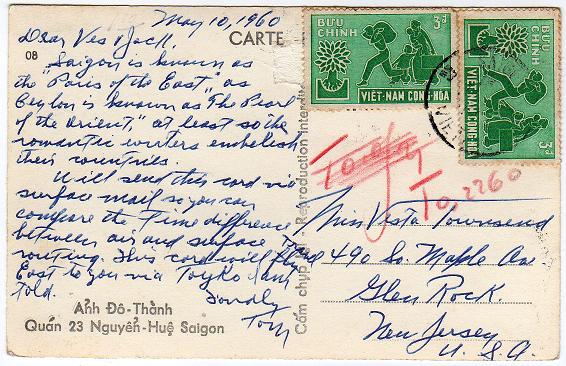 May 10, 1960
CARTE
08
Dear Ves & Jack.
Saigon is known as
the "Paris of the East," as
Ceylon is known as the Pearl
of the Orient," at least so the
romantic writers embelesh
their countries.
Will send this card via
surface mail so you can
compare the Time difference
between air and surface
routing. This card will fly
East to you via Toyko I am
told.
Fondly
Tom
Ảnh Đô-Thành
Quán 23 Nguyễn-Huệ Saigon
Cấm chụp lại - Reproduction interdite
BƯU CHÍNH
3đ
VIỆT-NAM CỘNG-HÒA
BƯU CHÍNH
3đ
VIỆT-NAM CỘNG-HÒA
To, 2260
Miss Vesta Townsend
490 So. Maple Ave
Glen Rock.
New Jersey
U. S. A.